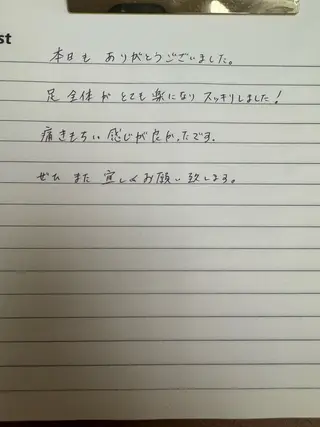 st
本日も ありがとうございました。
足 全体が とても 楽になり スッキリしました!
痛きもちい 感じが 良かったです.
ぜひ また 宜しくお願い致します。